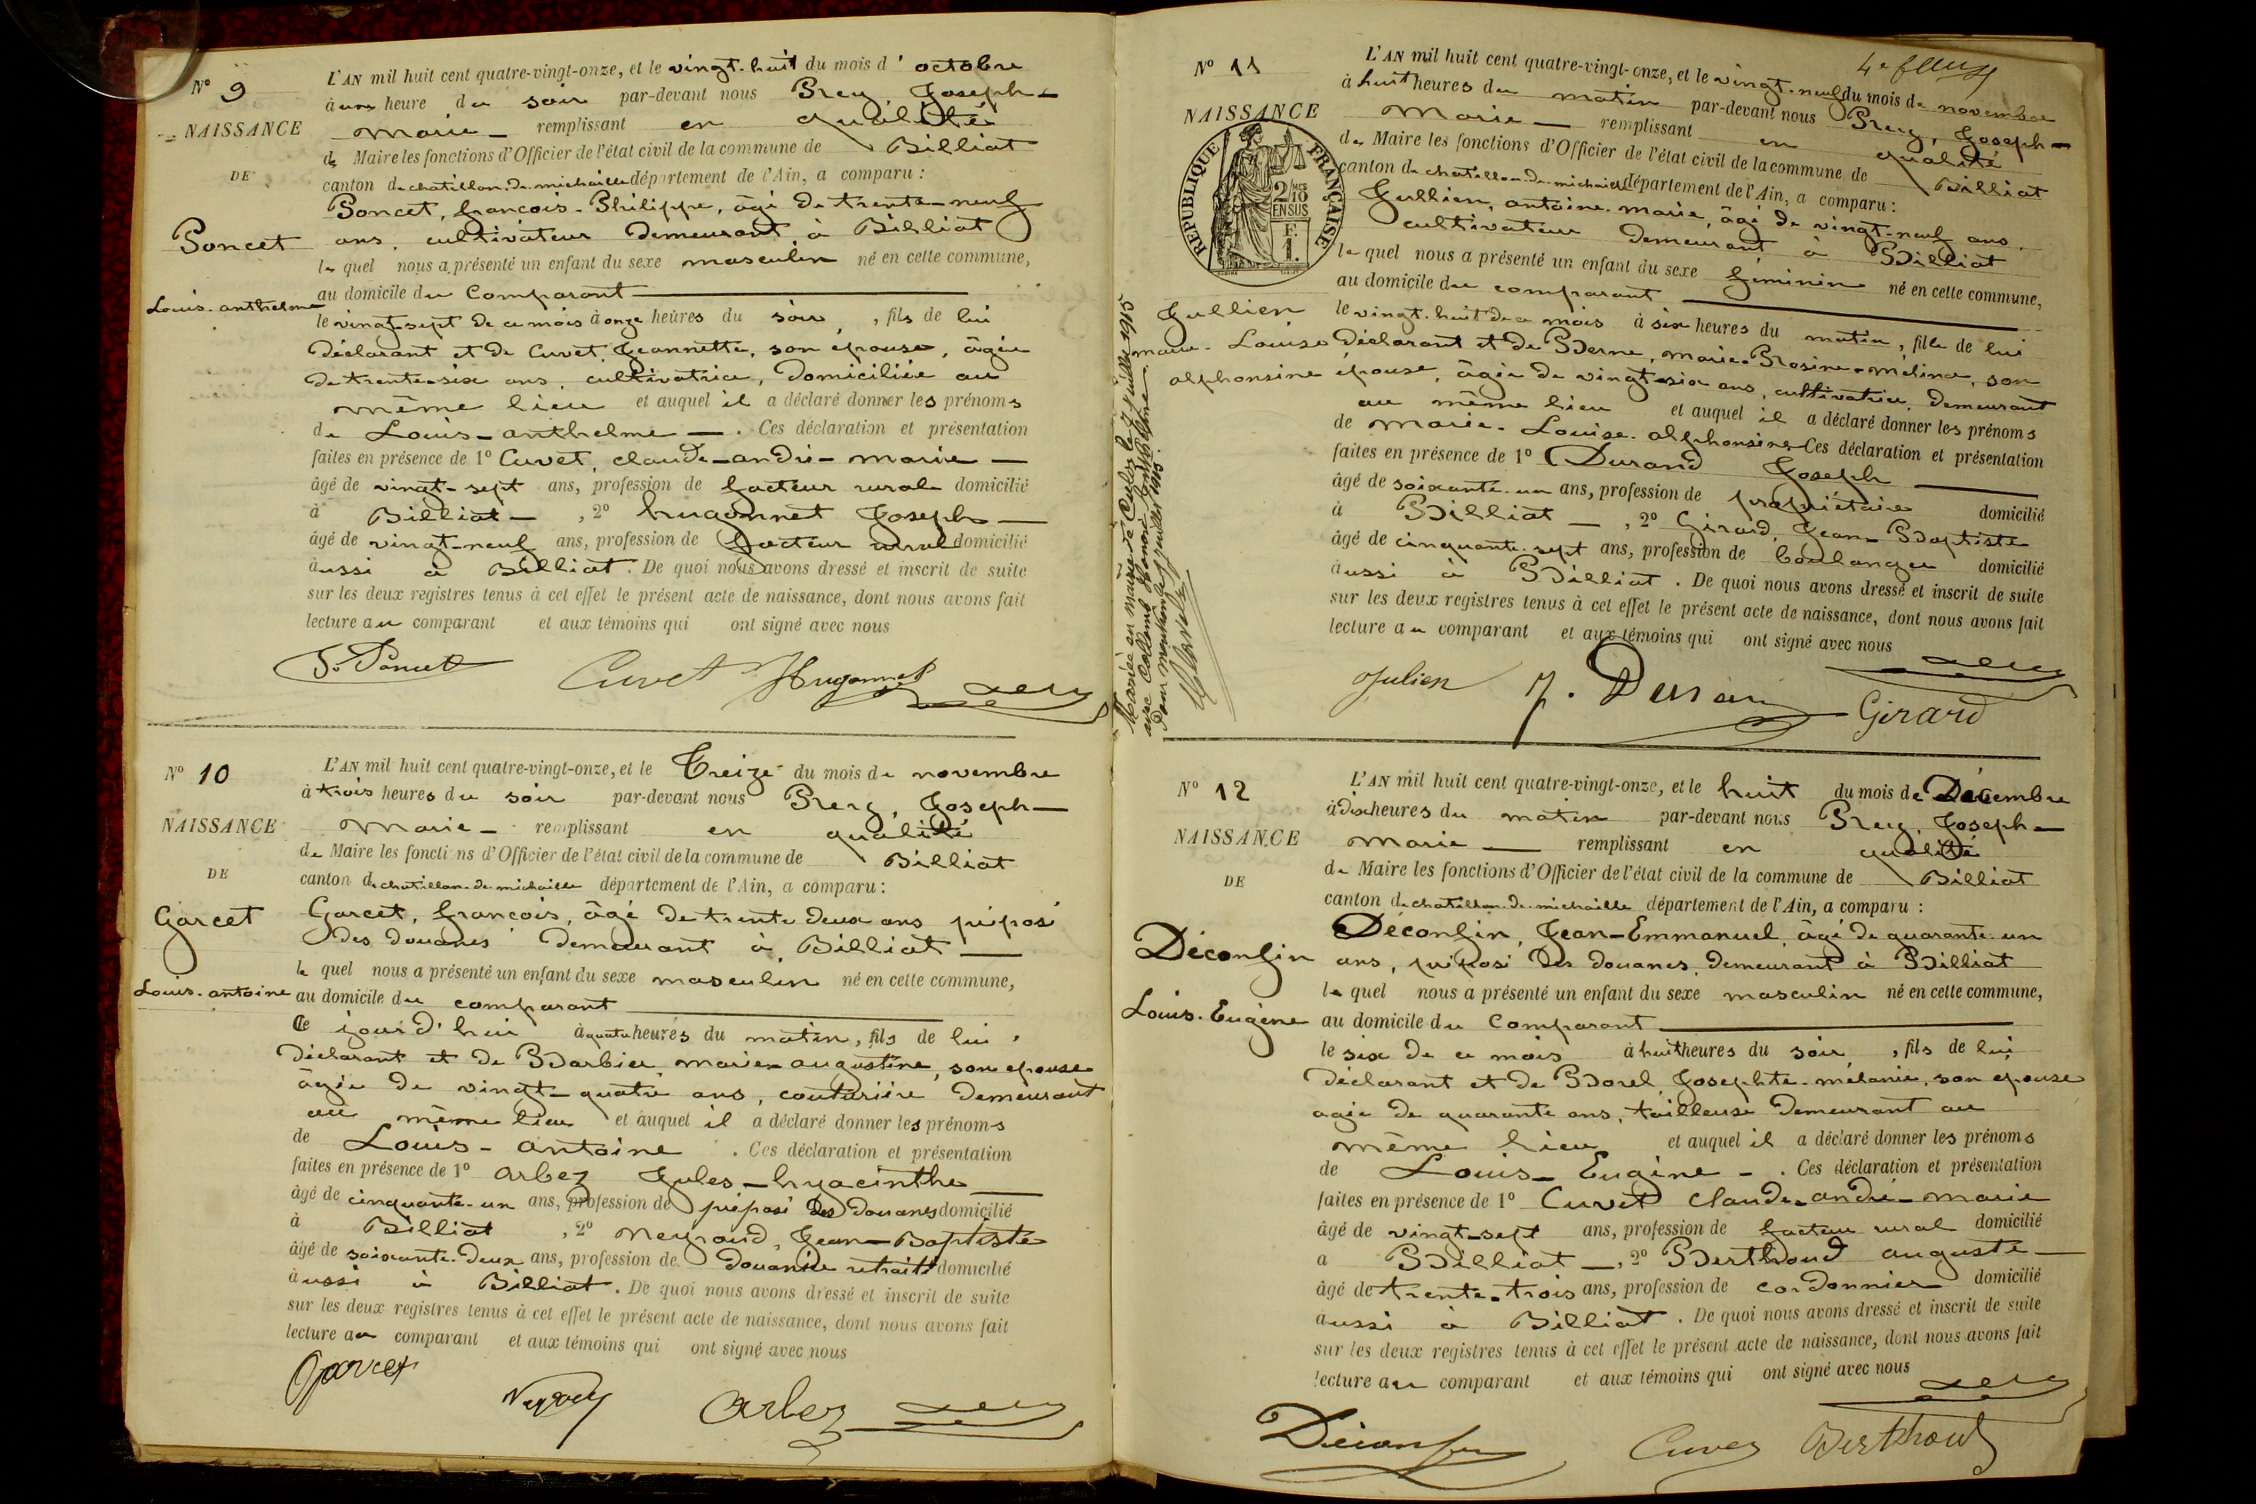 N° 9
NAISSANCE
DE
Poncet
Louis-anthelme
L'AN mil huit cent quatre-vingt-onze, et le vingt-huit du mois d'octobre
à une heure du soir par-devant nous Prey Joseph-
Marie - remplissant en qualité
de Maire les fonctions d'Officier de l'état civil de la commune de Billiat
canton de chatillon-de-michaille département de l'Ain, a comparu :
Poncet, françois-Philippe, âgé de trente-neuf
ans, cultivateur demeurant à Billiat
lequel nous a présenté un enfant du sexe masculin né en cette commune,
au domicile du Comparant
le vingt-sept de ce mois à onze heures du soir, fils de lui
déclarant et de Cuvet, Jeannette, son épouse, âgée
de trente-six ans, cultivatrice, domiciliée au
même lieu et auquel il a déclaré donner les prénoms
de Louis-anthelme - . Ces déclaration et présentation
faites en présence de 1° Cuvet, claude-andré-marie -
âgé de vingt-sept ans, profession de facteur rural domicilié
à Billiat - , 2° hugonnet Joseph -
âgé de vingt-neuf ans, profession de facteur rural domicilié
aussi à Billiat. De quoi nous avons dressé et inscrit de suite
sur les deux registres tenus à cet effet le présent acte de naissance, dont nous avons fait
lecture au comparant et aux témoins qui ont signé avec nous
Poncet Cuvet Hugonnet Prey
N° 10
NAISSANCE
DE
Garcet
Louis-antoine
L'AN mil huit cent quatre-vingt-onze, et le Treize du mois de novembre
à trois heures du soir par-devant nous Prey, Joseph-
Marie - remplissant en qualité
de Maire les fonctions d'Officier de l'état civil de la commune de Billiat
canton de chatillon-de-michaille département de l'Ain, a comparu :
Garcet, françois, âgé de trente deux ans préposé
des douanes demeurant à Billiat
lequel nous a présenté un enfant du sexe masculin né en cette commune,
au domicile du comparant
Ce jour d'hui à quatre heures du matin, fils de lui,
déclarant et de Barbier marie-augustine, son épouse
âgée de vingt-quatre ans, couturière demeurant
au même lieu et auquel il a déclaré donner les prénoms
de Louis-antoine . Ces déclaration et présentation
faites en présence de 1° arbez Jules-hyacinthe
âgé de cinquante-un ans, profession de préposé des douanes domicilié
à Billiat , 2° neyraud, Jean-Baptiste
âgé de soixante-deux ans, profession de douanier retraité domicilié
aussi à Billiat. De quoi nous avons dressé et inscrit de suite
sur les deux registres tenus à cet effet le présent acte de naissance, dont nous avons fait
lecture au comparant et aux témoins qui ont signé avec nous
Garcet Arbez Prey
4e feuille
N° 11
NAISSANCE
RÉPUBLIQUE FRANÇAISE
2/10 MES
EN SUS
F.
1.
Jullien
marie-Louise
alphonsine
Mariée en mairie de Culoz le 7 juillet 1915
L'AN mil huit cent quatre-vingt-onze, et le vingt-neuf du mois de novembre
à huit heures du matin par-devant nous Prey, Joseph-
Marie - remplissant en qualité
de Maire les fonctions d'Officier de l'état civil de la commune de Billiat
canton de chatillon-de-michaille département de l'Ain, a comparu :
Jullien, antoine-marie, âgé de vingt-neuf ans,
cultivateur demeurant à Billiat
lequel nous a présenté un enfant du sexe féminin né en cette commune,
au domicile du comparant
le vingt-huit de ce mois à six heures du matin, fille de lui
déclarant et de Berne, marie-Rosine-mélina, son
épouse, âgée de vingt-six ans, cultivatrice, demeurant
au même lieu et auquel il a déclaré donner les prénoms
de Marie-Louise-alphonsine Ces déclaration et présentation
faites en présence de 1° Durand Joseph
âgé de soixante-un ans, profession de propriétaire domicilié
à Billiat - , 2° Girard, Jean-Baptiste
âgé de cinquante-sept ans, profession de boulanger domicilié
aussi à Billiat. De quoi nous avons dressé et inscrit de suite
sur les deux registres tenus à cet effet le présent acte de naissance, dont nous avons fait
lecture au comparant et aux témoins qui ont signé avec nous
Julien J. Duran Girard Prey
N° 12
NAISSANCE
DE
Déconfin
Louis-Eugène
L'AN mil huit cent quatre-vingt-onze, et le huit du mois de Décembre
à dix heures du matin par-devant nous Prey, Joseph-
Marie - remplissant en qualité
de Maire les fonctions d'Officier de l'état civil de la commune de Billiat
canton de chatillon-de-michaille département de l'Ain, a comparu :
Déconfin, Jean-Emmanuel, âgé de quarante-un
ans, préposé des douanes, demeurant à Billiat
lequel nous a présenté un enfant du sexe masculin né en cette commune,
au domicile du Comparant
le six de ce mois à huit heures du soir, fils de lui
déclarant et de Borel Josephte-mélanie, son épouse
agée de quarante ans, tailleuse demeurant au
même lieu et auquel il a déclaré donner les prénoms
de Louis-Eugène - . Ces déclaration et présentation
faites en présence de 1° Cuvet claude-andré-marie
âgé de vingt-sept ans, profession de facteur rural domicilié
a Billiat - , 2° Berthoud auguste -
âgé de trente-trois ans, profession de cordonnier domicilié
aussi à Billiat. De quoi nous avons dressé et inscrit de suite
sur les deux registres tenus à cet effet le présent acte de naissance, dont nous avons fait
lecture au comparant et aux témoins qui ont signé avec nous
Déconfin Cuvet Berthoud Prey